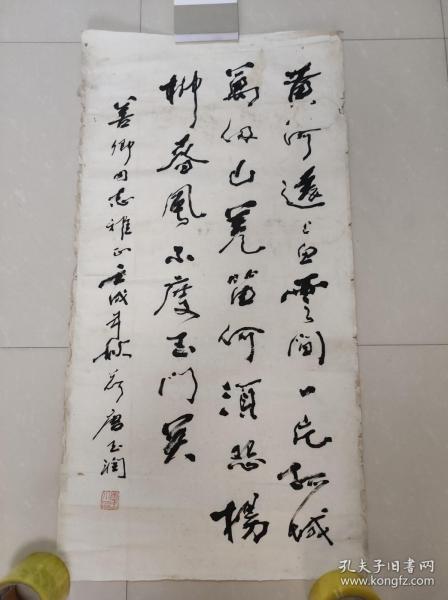 黄河遠上白雲间一片孤城
萬仞山羌笛何須怨楊
柳春風不度玉門關
善卿同志雅正壬戌年秋月唐玉润
孔夫子旧书网
www.kongfz.com